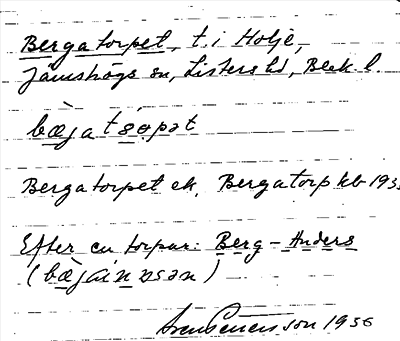 Bergatorpet, t. i Holje,
Jämshögs sn, Listers hd, Blek. l.
bæjatsøpət
Bergatorpet ek. Bergatorp kb 193
Efter en torpar: Berg-Anders
(bæjainnsən)
1936